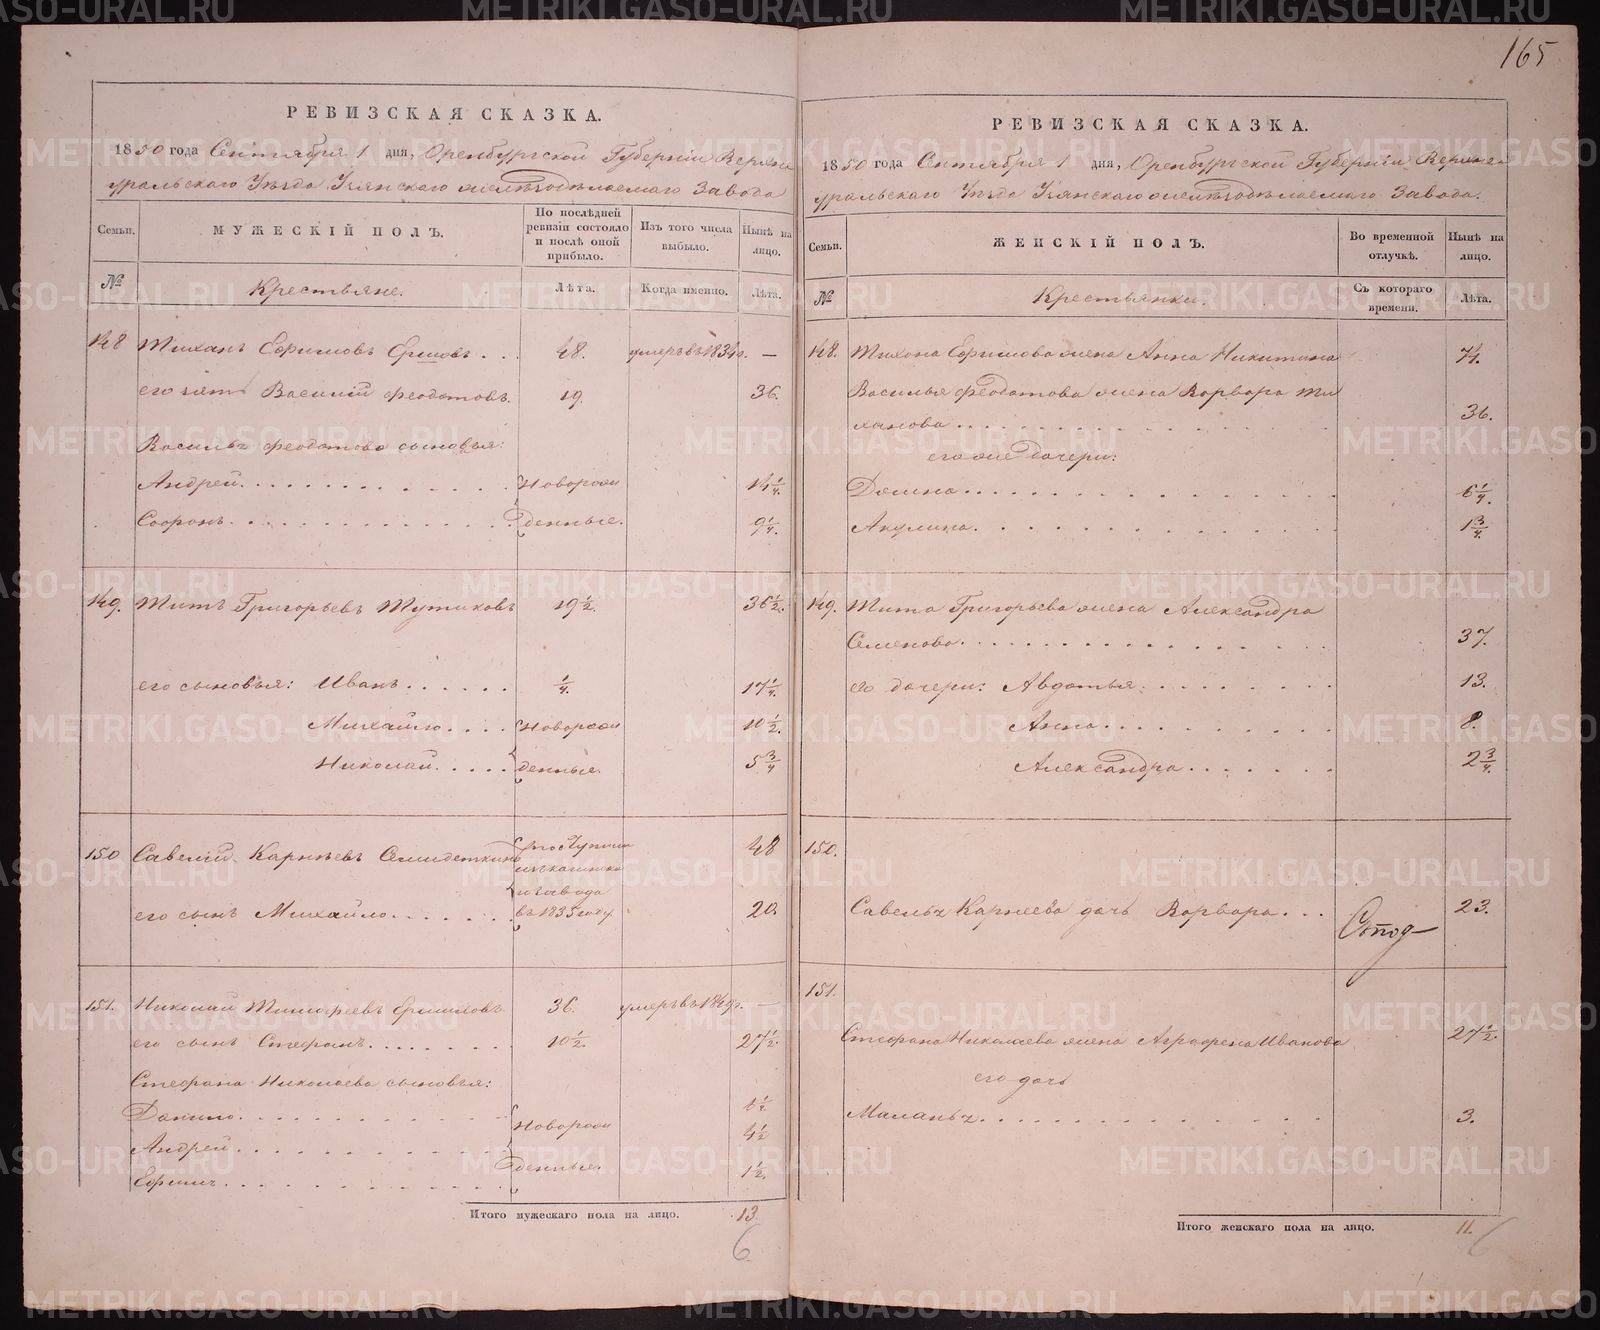 165
РЕВИЗСКАЯ СКАЗКА.
1850 года Сентября 1 дня, Оренбургской Губернiи Верхне
уральскаго Уѣзда Узянскаго железодѣлаемаго Завода
Семьи.
МУЖЕСКIЙ ПОЛЪ.
По послѣдней
ревизiи состояло
и послѣ оной
прибыло.
Изъ того числа
выбыло.
Нынѣ на
лицо.
№
Крестьяне.
Лѣта.
Когда именно.
Лѣта.
148 Тиханъ Ефимовъ Ершовъ . . . 48. умеръ въ 1834 г. —
его зять Василiй Феодотовъ. 19. 36.
Василья Феодотова сыновья:
Андрей. Новорож 14 1/4.
Софронъ. денные. 9 1/4.
149. Титъ Григорьевъ Тутиковъ 19 1/2. 36 1/2.
его сыновья: Иванъ. 1/4. 17 1/4.
Михайло. Новорож 10 1/2.
Николай. денные. 5 3/4
150 Савелiй Карнѣевъ Семидеткинъ поступили 48
завода
его сынъ Михайло. въ 1835 году. 20.
151. Николай Тимофеевъ Ершиловъ 36. умеръ въ 1849 г. —
его сынъ Стефанъ. 10 1/2. 27 1/2.
Стефана Николаева сыновья:
Данило. Новорож
Андрей. 4 1/2
Ефимъ. денные. 1 1/2.
Итого мужескаго пола на лицо. 13.
6
РЕВИЗСКАЯ СКАЗКА.
1850 года Сентября 1 дня, Оренбургской Губернiи Верхне
уральскаго Уѣзда Узянскаго железодѣлаемаго Завода.
Семьи.
ЖЕНСКIЙ ПОЛЪ.
Во временной
отлучкѣ.
Нынѣ на
лицо.
№
Крестьянки.
Съ котораго
времени.
Лѣта.
148. Тихона Ефимова жена Анна Никитина 74.
Василья Феодотова жена Варвара Ти
ханова 36.
его же дочери:
Домна. 6 1/4.
Акулина. 1 3/4.
149. Тита Григорьева жена Александра
Семенова. 37.
его дочери: Авдотья. 13.
Анна. 8.
Александра. 2 3/4.
150.
Савелья Карнеева дочь Варвара. . . 23.
151.
Стефана Николаева жена Аграфена Иванова 27 1/2.
его дочь
Маланья. 3.
Итого женскаго пола на лицо. 11.
6
METRIKI.GASO-URAL.RU